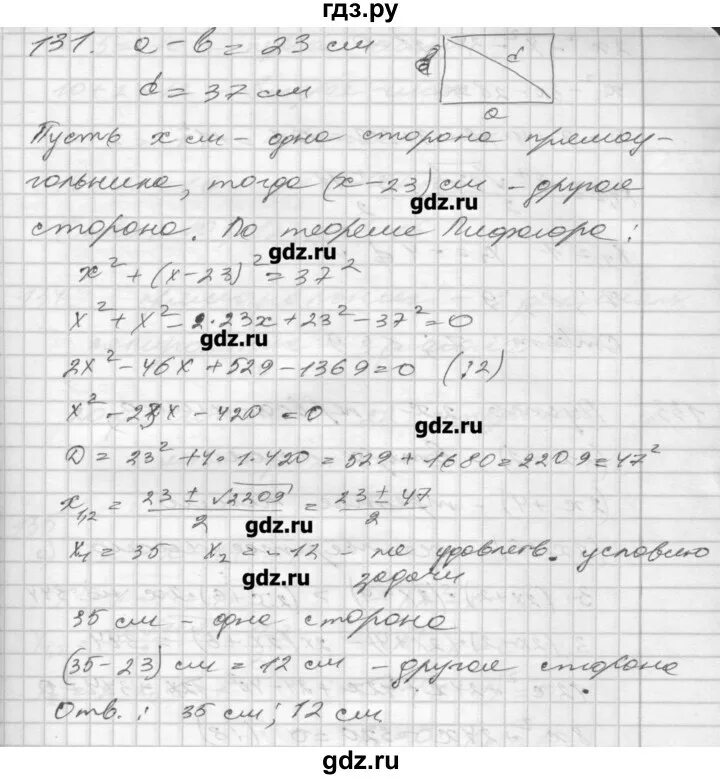 гдз.ру
131. a - b = 23 см
d = 37 см
d
a
Пусть x см - одна сторона прямоу-
гольника, тогда (x - 23) см - другая
gdz.ru
сторона. По теореме Пифагора:
gdz.ru
x² + (x - 23)² = 37²
x² + x² - 2·23x + 23² - 37² = 0
gdz.ru
2x² - 46x + 529 - 1369 = 0 (:2)
x² - 23x - 420 = 0
gdz.ru
D = 23² + 4·1·420 = 529 + 1680 = 2209 = 47²
x₁,₂ = (23 ± √2209)/2 = (23 ± 47)/2
gdz.ru
x₁ = 35 x₂ = -12 - не удовлетв. условию
задачи
gdz.ru
35 см - одна сторона
(35 - 23) см = 12 см - другая сторона.
gdz.ru
Отв.: 35 см; 12 см
gdz.ru